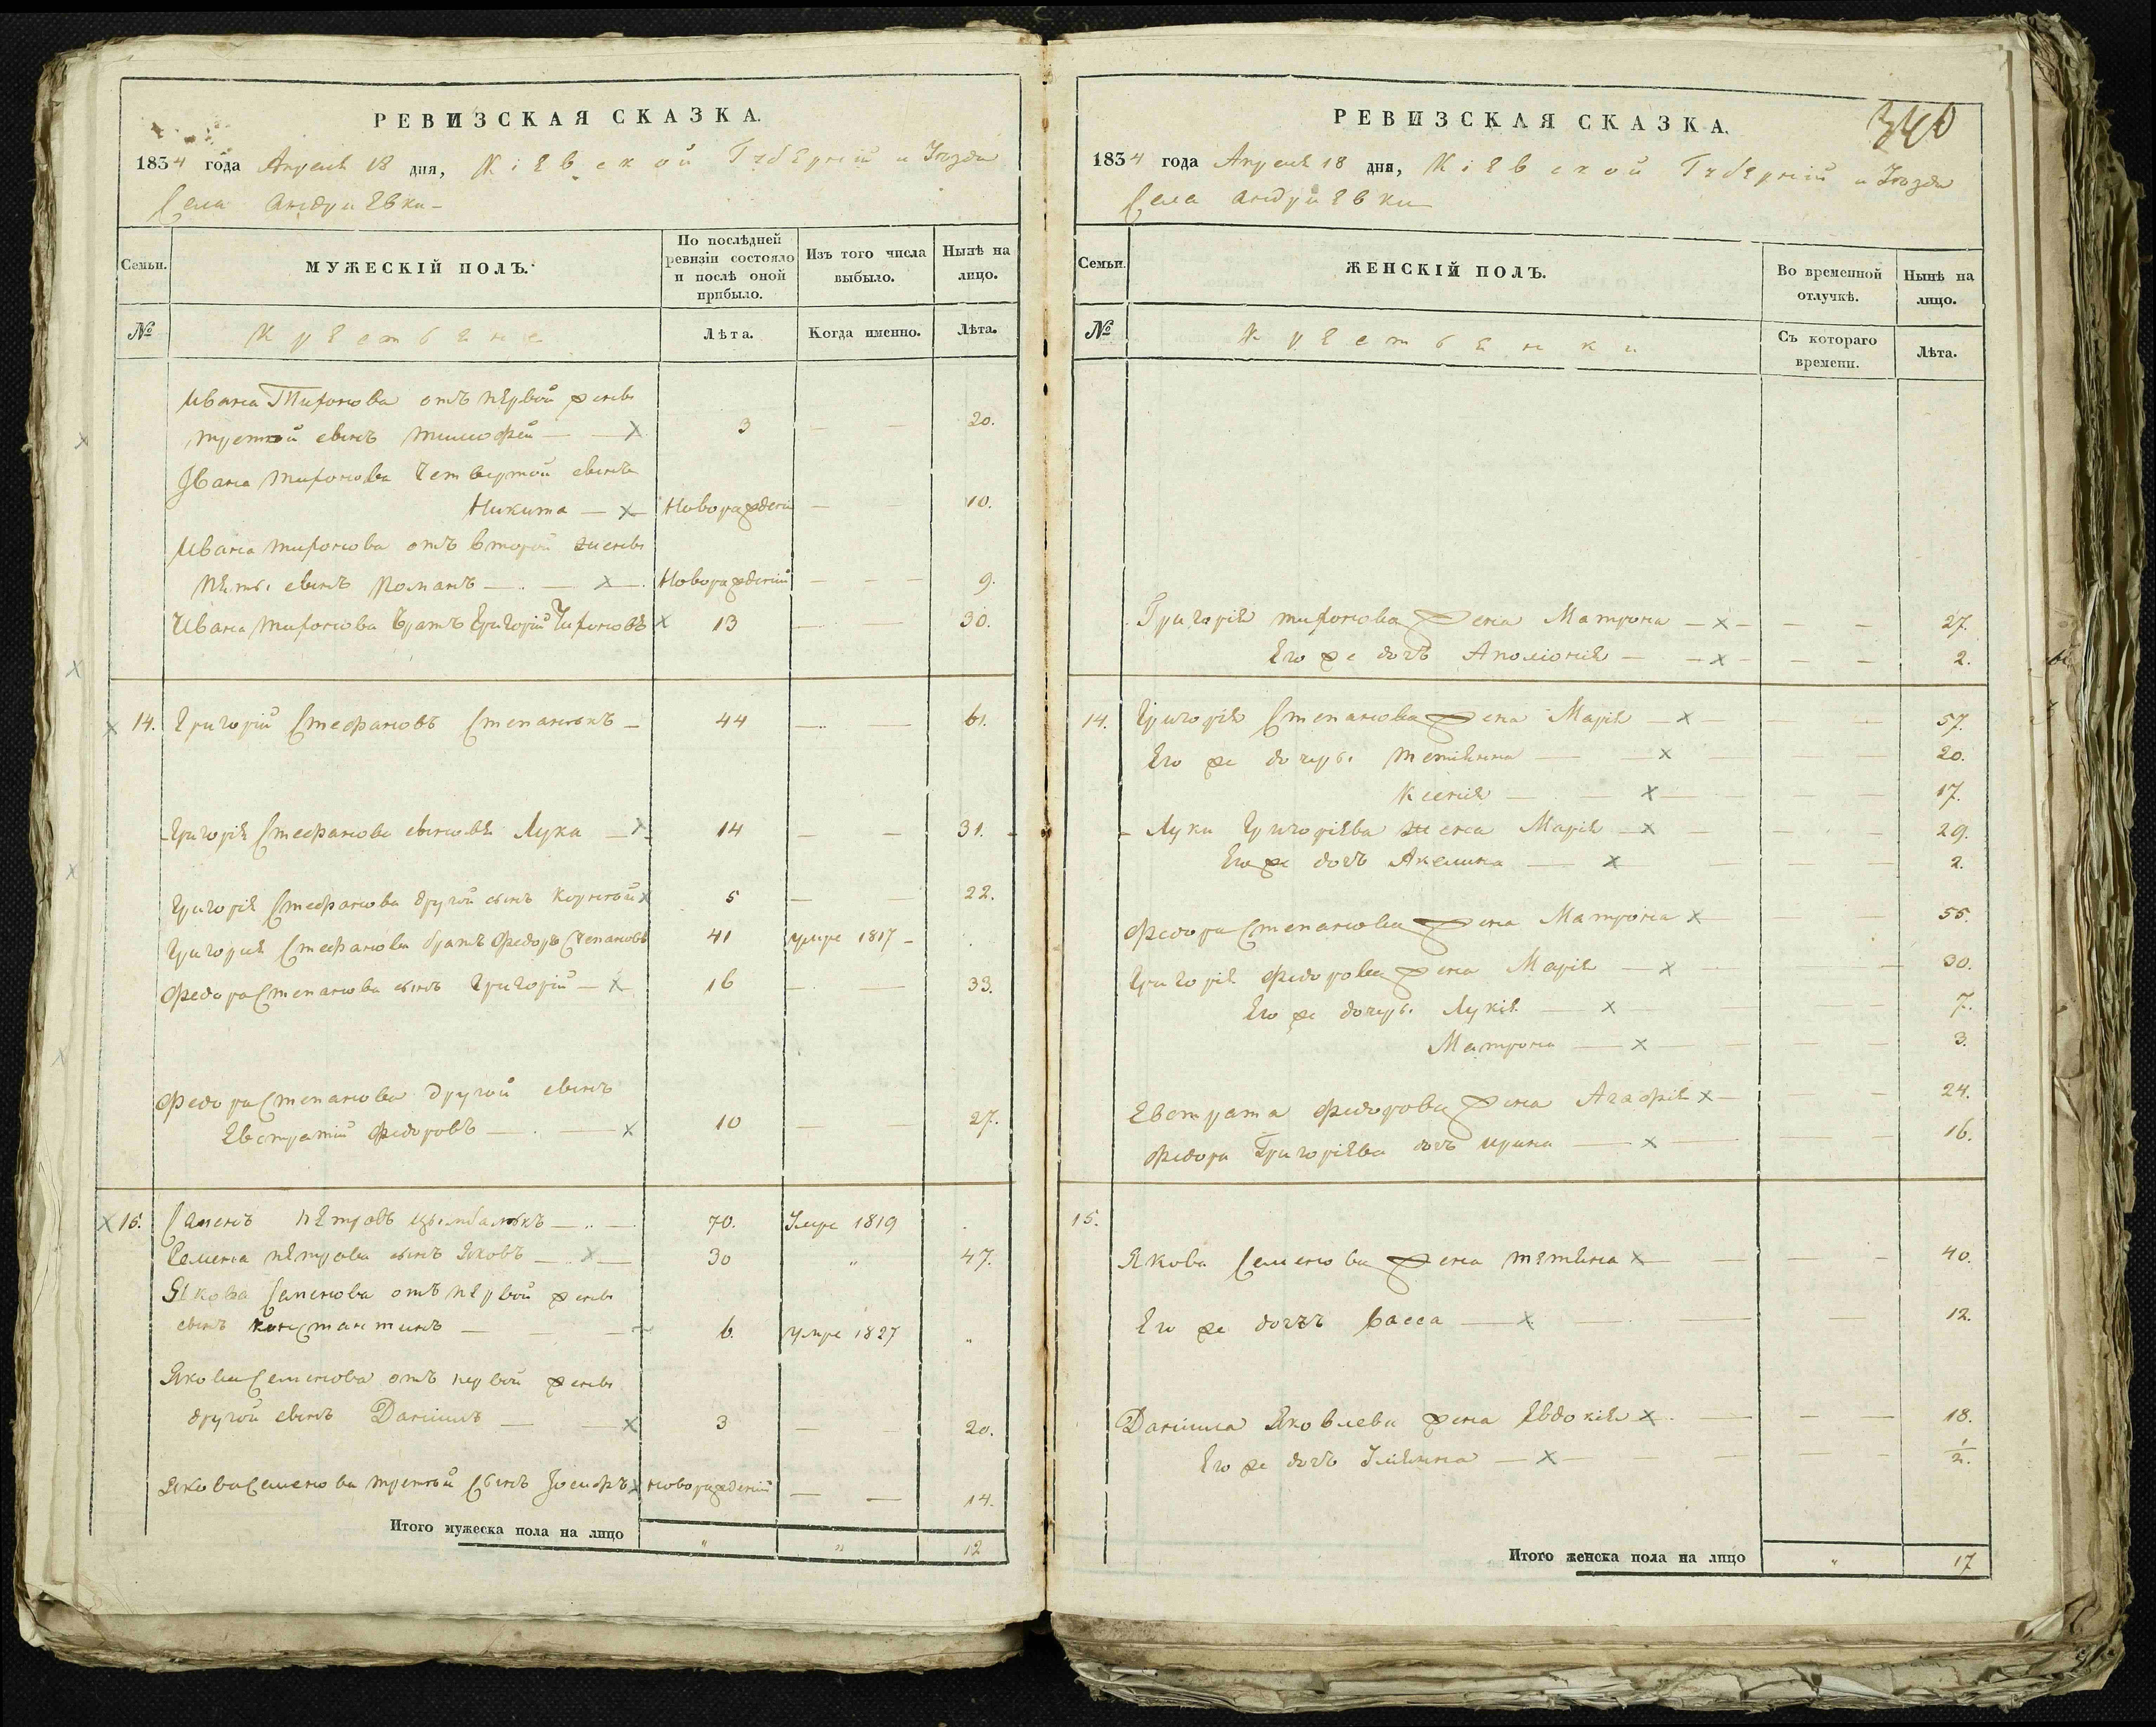 РЕВИЗСКАЯ СКАЗКА.
1834 года Апреля 18 дня, Кіевской Губерніи и Уѣзда
Села Андріевки
Семьи.
МУЖЕСКІЙ ПОЛЪ.
По послѣдней ревизіи состояло и послѣ оной прибыло.
Изъ того числа выбыло.
Нынѣ на лицо.
№
Крестьяне
Лѣта.
Когда именно.
Лѣта.
Ивана отъ первой жены
третий сынъ Тимофей — X 3 — — 20.
Ивана четвертой сынъ
Никита — X Новорожденій — — 10.
Ивана отъ второй жены
пяты сынъ Романъ — X Новорожденій — — 9.
Ивана братъ Григорій X 13 — — 30.
X 14. Григорій Стефановъ — 44 — — 61.
Григорія Стефанова сыновя Лука — X 14 — — 31.
Григорія Стефанова другой сынъ Корнѣй X 5 — — 22.
Григория Стефанова братъ Федоръ Степановъ 41 умре 1817 -
Федора Степанова сынъ Григорій — X 16 — — 33.
Федора Степанова другой сынъ
Евстратій Федоровъ — X 10 — — 27.
X 15. Семенъ Петровъ Цымбалюкъ — 70. Умре 1819
Семена Петрова сынъ Яковъ — X — 30 " 47.
Якова Семенова отъ первой жены
сынъ Константинъ — 6. умре 1827 "
Якова Семенова отъ первой жены
другой сынъ Даніилъ — X 3 — — 20.
Якова Семенова третый сынъ Іосифъ X новорожденій — — 14.
Итого мужеска пола на лицо " " 12
340
РЕВИЗСКАЯ СКАЗКА.
1834 года Апреля 18 дня, Кіевской Губерніи и Уѣзда
Села Андріевки
Семьи.
ЖЕНСКІЙ ПОЛЪ.
Во временной отлучкѣ.
Нынѣ на лицо.
№
Крестьянки
Съ котораго времени.
Лѣта.
Григорія жена Матрона — X — — — 27.
Его же дочъ Аполіонія — X — — — 2.
14. Григорія Степанова жена Марія — X — — 57.
Его же дочеры Тетіянна — X — — 20.
Ксенія — X — — 17.
- Луки Григоріева жена Марія — X — — 29.
Его же дочъ Акелина — X — — 2.
Федора Степанова жена Матрона X — — 55.
Григорія Федорова жена Марія — X — — 30.
Его же дочеры Лукія — X — — 7.
Матрона — X — — 3.
Евстрата Федорова жена Агафія X — — — 24.
Федора Григоріева дочъ Ирина — X — — 16.
15.
Якова Семенова жена Тятяна X — — — 40.
Его же дочъ Васса — X — — 12.
Даніила Яковлева жена Евдокія X — — — 18.
Его же дочъ Уліянна — X — — — 1/2.
Итого женска пола на лицо " 17